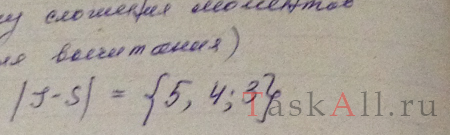 у сложения моментов
ля вычитания)
|J-S| = {5, 4; 3}
TaskAll.ru